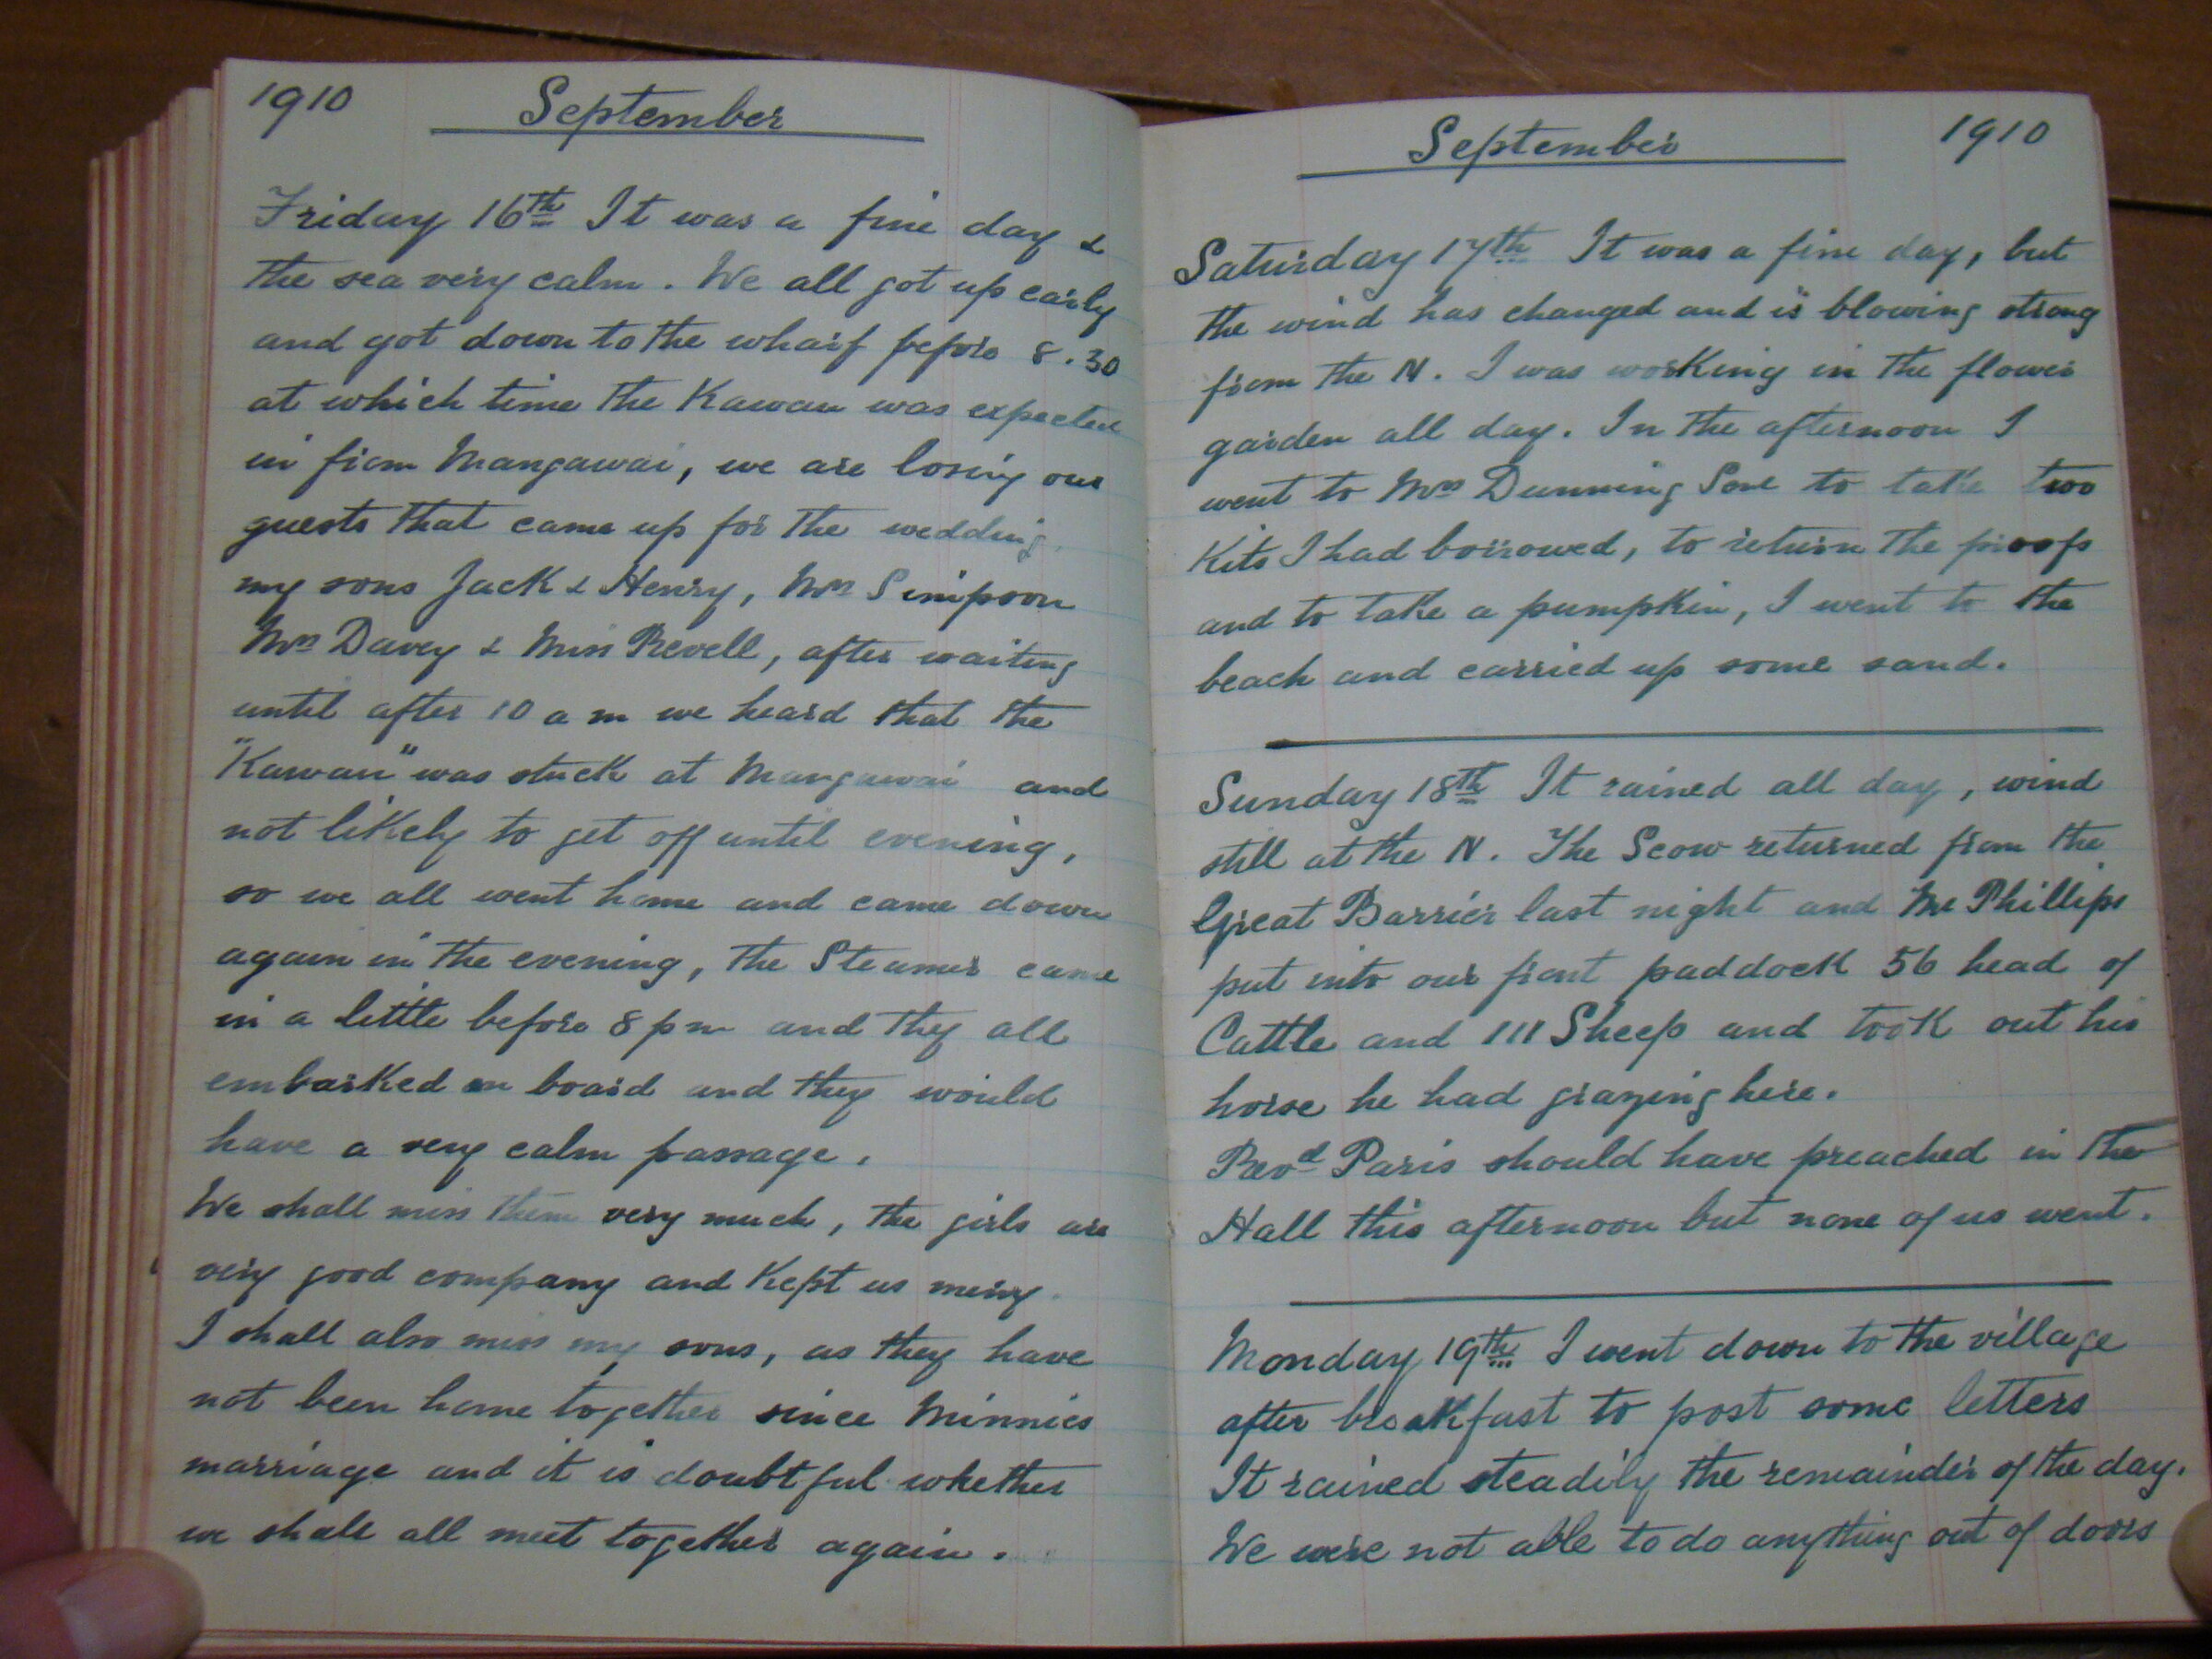 1910 September
Friday 16th It was a fine day &
the sea very calm. We all got up early
and got down to the wharf before 8.30
at which time the Kawau was expected
in from Mangawai, we are losing our
guests that came up for the wedding
my sons Jack & Henry, Mrs Simpson
Mrs Davey & Miss Revell, after waiting
until after 10 a m we heard that the
"Kawau" was stuck at Mangawai and
not likely to get off until evening,
so we all went home and came down
again in the evening, the Steamer came
in a little before 8 pm and they all
embarked on board and they would
have a very calm passage.
We shall miss them very much, the girls are
very good company and kept us merry.
I shall also miss my sons, as they have
not been home together since Minnies
marriage and it is doubtful whether
we shall all meet together again.
September 1910
Saturday 17th It was a fine day, but
the wind has changed and is blowing strong
from the N. I was working in the flower
garden all day. In the afternoon I
went to Mrs Dunning Senr to take two
Kits I had borrowed, to return the proofs
and to take a pumpkin, I went to the
beach and carried up some sand.
Sunday 18th It rained all day, wind
still at the N. The Scow returned from the
Great Barrier last night and Mr Phillips
put into our front paddock 56 head of
Cattle and 111 Sheep and took out his
horse he had grazing here.
Revd Paris should have preached in the
Hall this afternoon but none of us went.
Monday 19th I went down to the village
after breakfast to post some letters
It rained steadily the remainder of the day.
We were not able to do anything out of doors